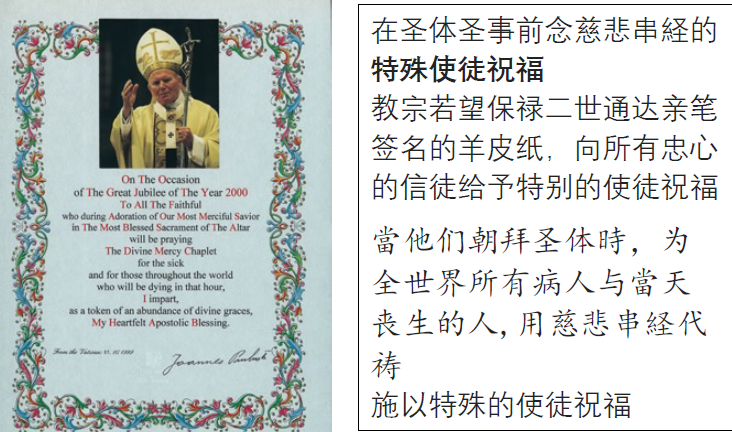 On The Occasion
of The Great Jubilee of The Year 2000
To All The Faithful
who during Adoration of Our Most Merciful Savior
in The Most Blessed Sacrament of The Altar
will be praying
The Divine Mercy Chaplet
for the sick
and for those throughout the world
who will be dying in that hour,
I impart,
as a token of an abundance of divine graces,
My Heartfelt Apostolic Blessing.
From the Vatican,
在圣体圣事前念慈悲串経的
特殊使徒祝福
教宗若望保禄二世通达亲笔
签名的羊皮纸，向所有忠心
的信徒给予特别的使徒祝福
當他们朝拜圣体時，为
全世界所有病人与當天
丧生的人,用慈悲串経代
祷
施以特殊的使徒祝福